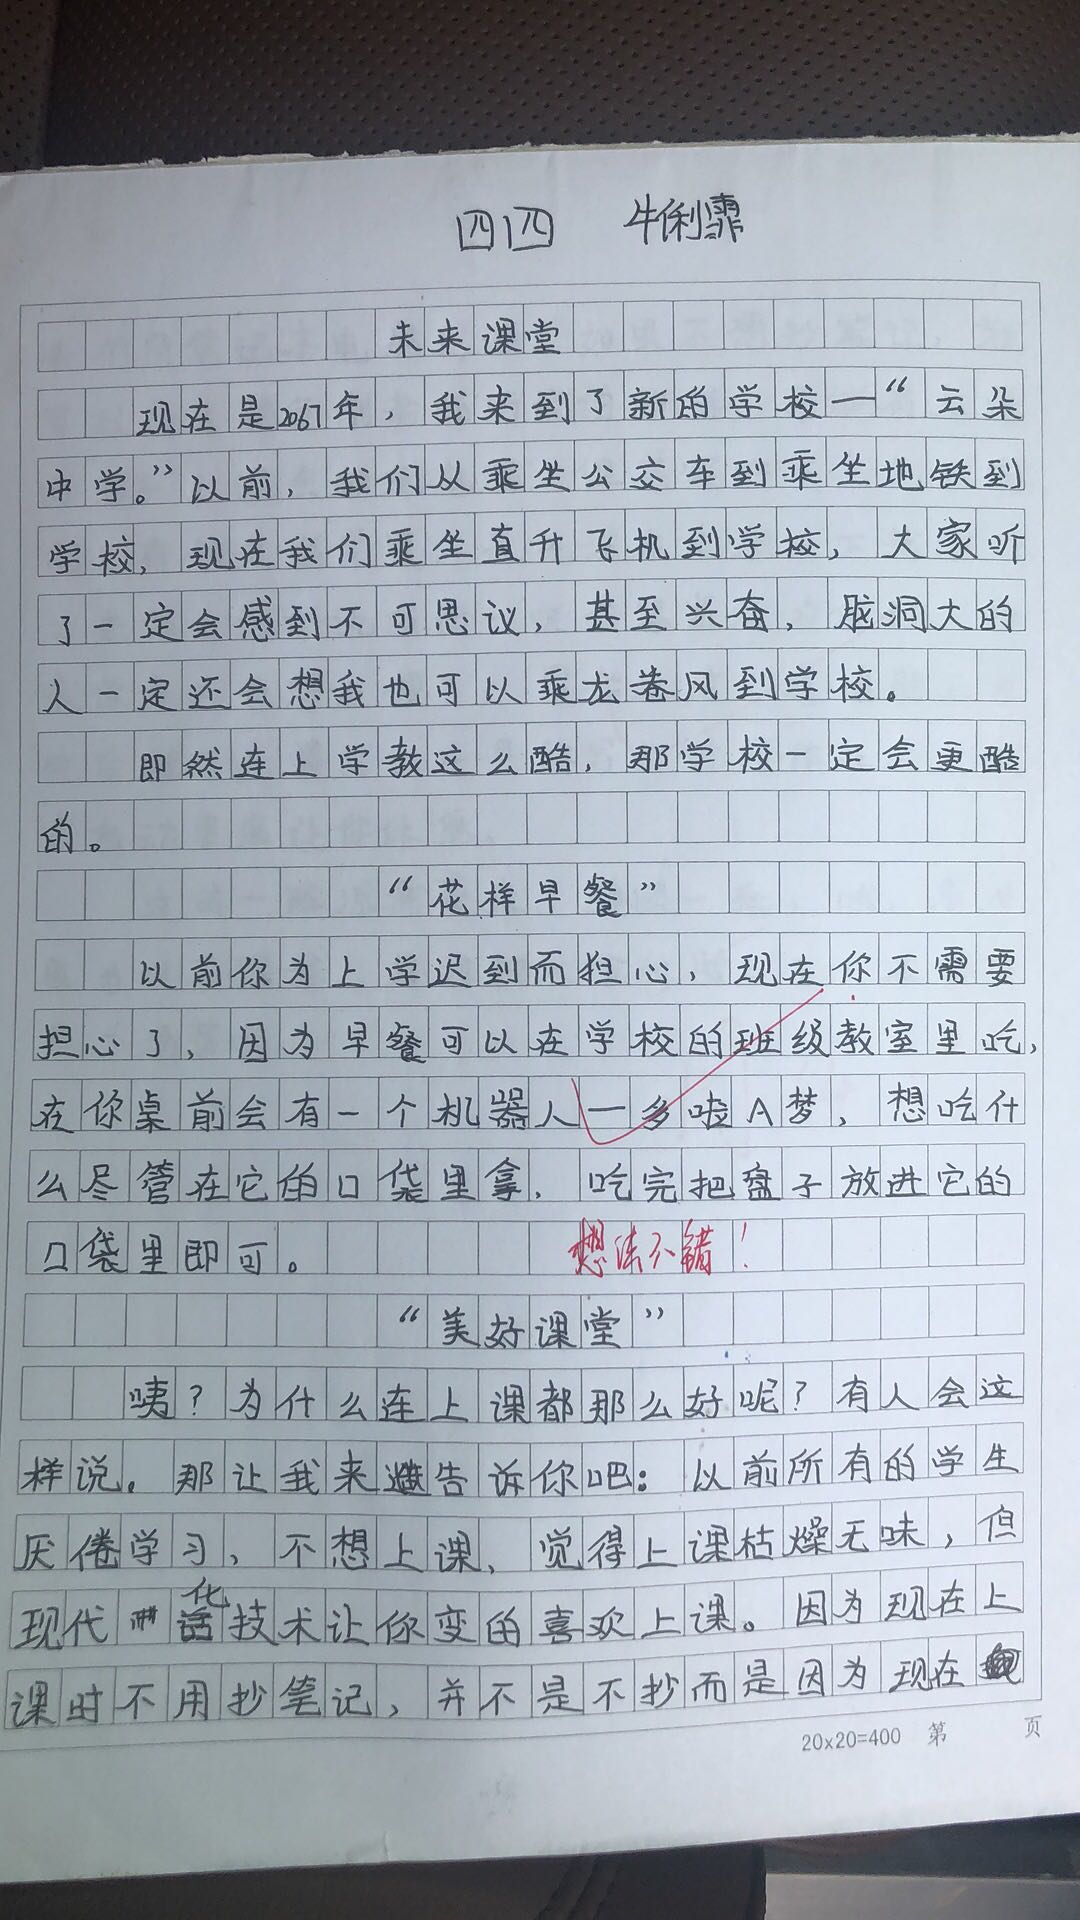 四四 牛俐霏
未来课堂
现在是2067年，我来到了新的学校—“云朵
中学。”以前，我们从乘坐公交车到乘坐地铁到
学校，现在我们乘坐直升飞机到学校，大家听
了一定会感到不可思议，甚至兴奋，脑洞大的
人一定还会想我也可以乘龙卷风到学校。
即然连上学教这么酷，那学校一定会更酷
的。
“花样早餐”
以前你为上学迟到而担心，现在你不需要
担心了，因为早餐可以在学校的班级教室里吃，
在你桌前会有一个机器人—多啦A梦，想吃什
么尽管在它的口袋里拿，吃完把盘子放进它的
口袋里即可。
想法不错！
“美好课堂”
咦？为什么连上课都那么好呢？有人会这
样说。那让我来告诉你吧：以前所有的学生
厌倦学习，不想上课，觉得上课枯燥无味，但
现代化技术让你变的喜欢上课。因为现在上
课时不用抄笔记，并不是不抄而是因为现在
20x20=400 第 页